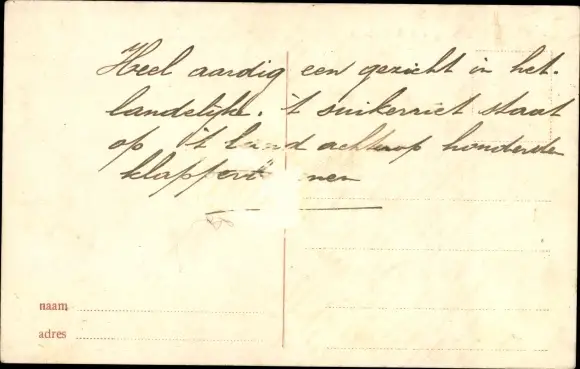 Heel aardig een gezicht in het.
landelijke. 't suikerriet staat
op 't land achterop honderden
klapper nen
naam
adres